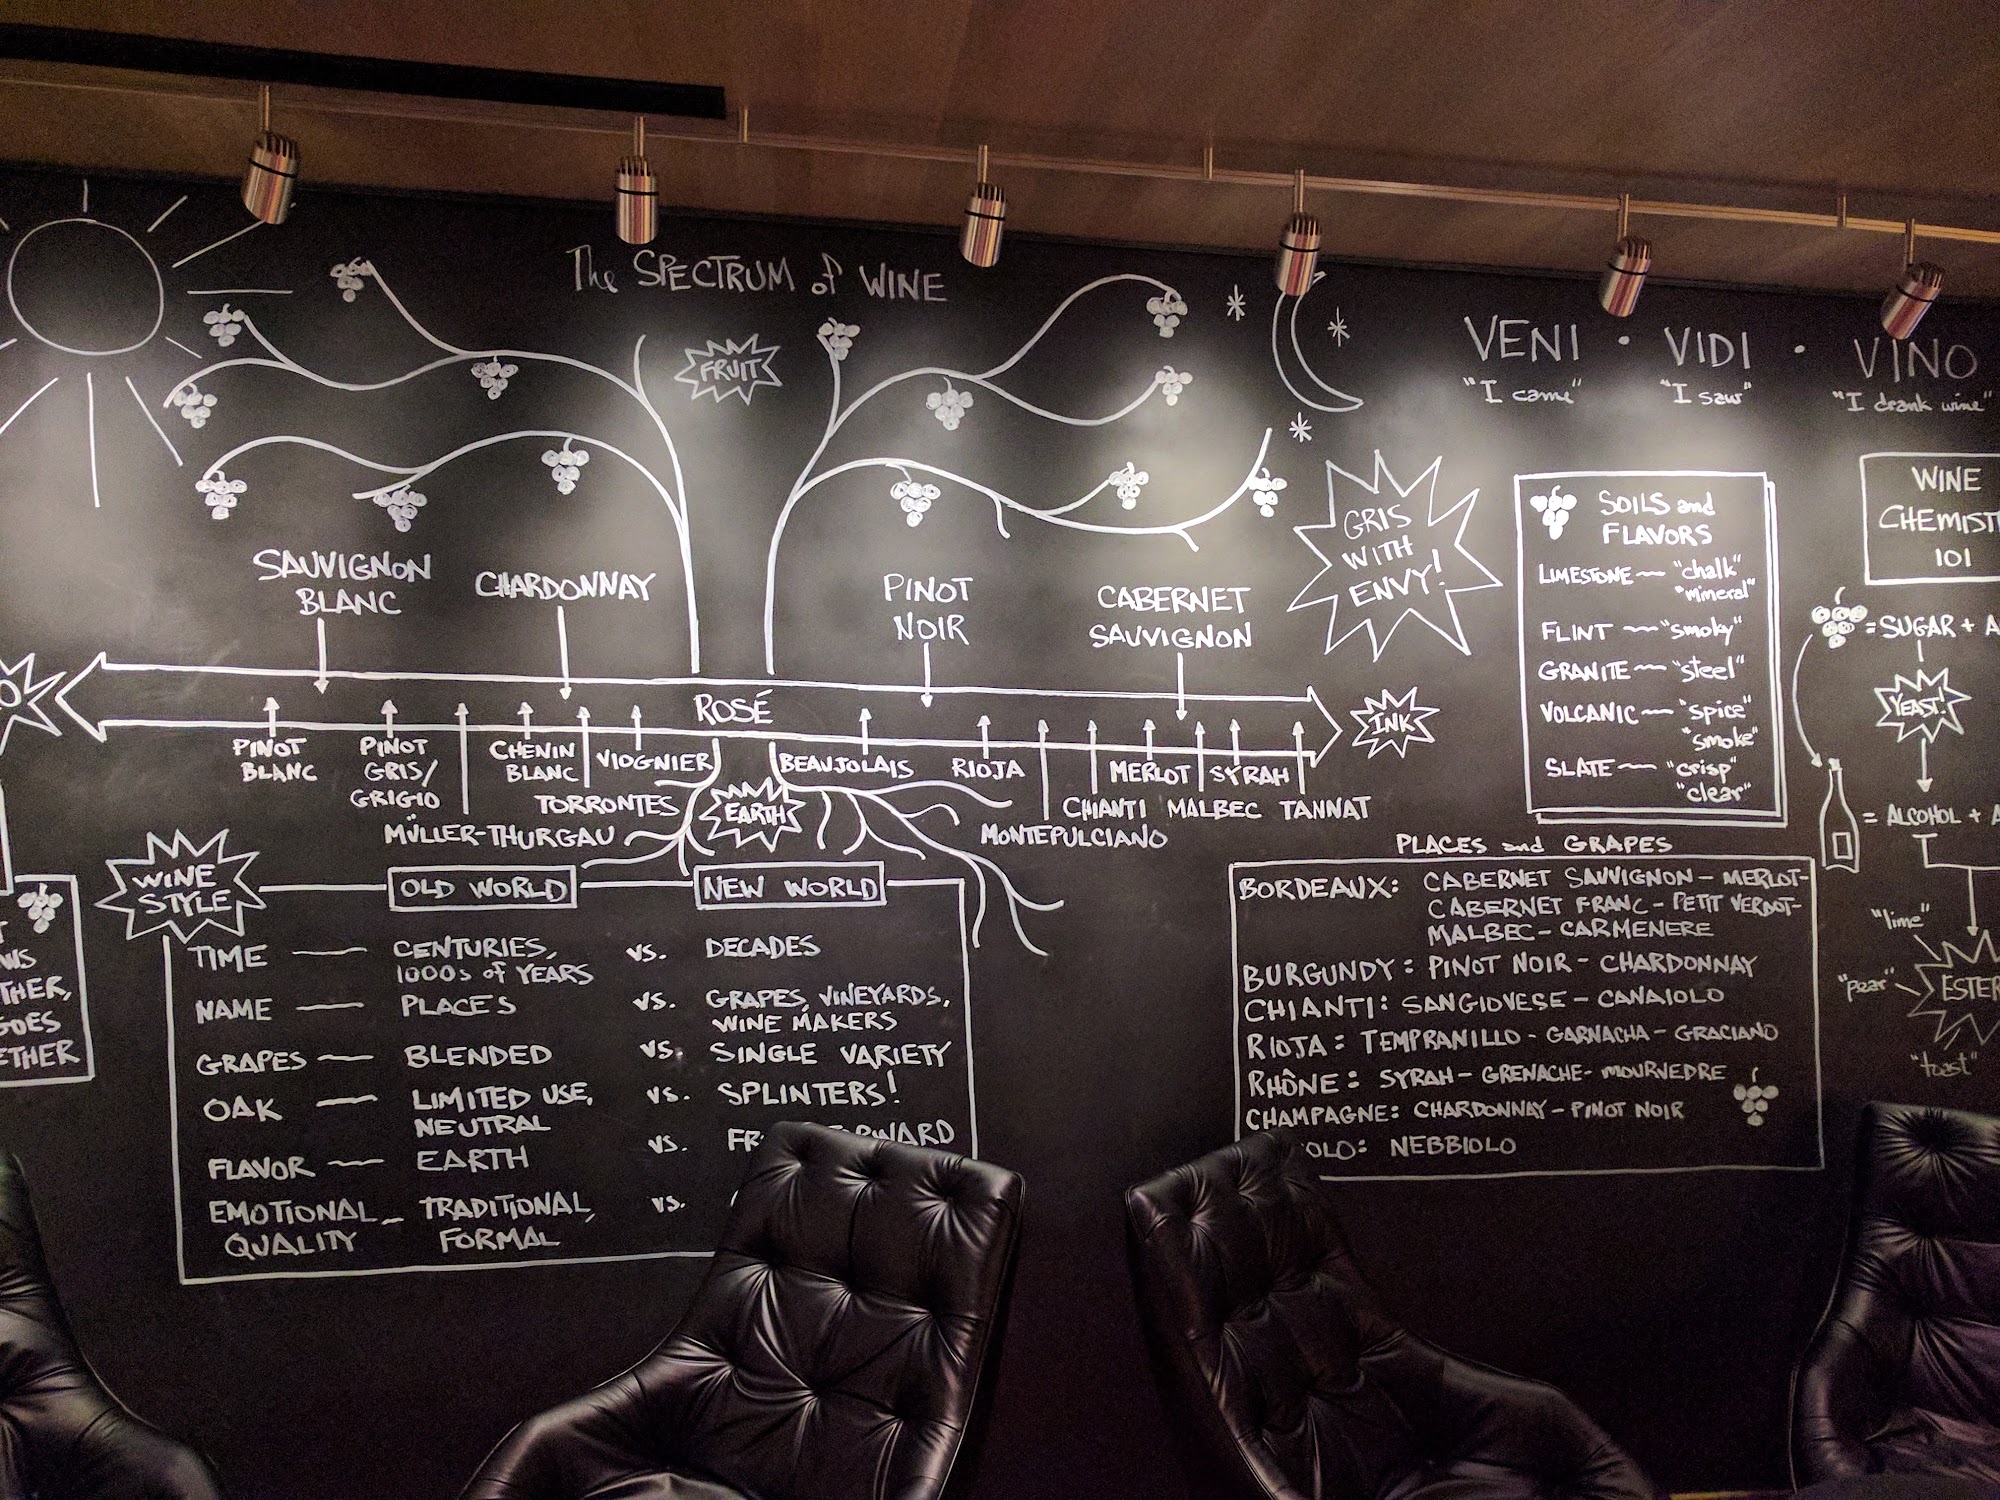 The SPECTRUM of WINE
FRUIT
VENI · VIDI · VINO
"I came" "I saw" "I drank wine"
GRIS
WITH
ENVY!
SAUVIGNON
BLANC
CHARDONNAY
PINOT
NOIR
CABERNET
SAUVIGNON
ROSÉ
INK
PINOT
BLANC
PINOT
GRIS/
GRIGIO
MÜLLER-THURGAU
CHENIN
BLANC
TORRONTES
VIOGNIER
EARTH
BEAUJOLAIS
RIOJA
MONTEPULCIANO
CHIANTI
MERLOT
MALBEC
SYRAH
TANNAT
SOILS and
FLAVORS
LIMESTONE — "chalk"
"mineral"
FLINT — "smoky"
GRANITE — "steel"
VOLCANIC — "spice"
"smoke"
SLATE — "crisp"
"clear"
WINE
101
= SUGAR +
YEAST!
= ALCOHOL +
"lime"
"pear"
"toast"
WINE
STYLE
OLD WORLD
NEW WORLD
TIME — CENTURIES, vs. DECADES
1000s of YEARS
NAME — PLACES vs. GRAPES, VINEYARDS,
WINE MAKERS
GRAPES — BLENDED vs. SINGLE VARIETY
OAK — LIMITED USE, vs. SPLINTERS!
NEUTRAL
FLAVOR — EARTH vs.
EMOTIONAL — TRADITIONAL, vs.
QUALITY FORMAL
PLACES and GRAPES
BORDEAUX: CABERNET SAUVIGNON - MERLOT-
CABERNET FRANC - PETIT VERDOT-
MALBEC - CARMENERE
BURGUNDY: PINOT NOIR - CHARDONNAY
CHIANTI: SANGIOVESE - CANAIOLO
RIOJA: TEMPRANILLO - GARNACHA - GRACIANO
RHÔNE: SYRAH - GRENACHE - MOURVEDRE
CHAMPAGNE: CHARDONNAY - PINOT NOIR
NEBBIOLO